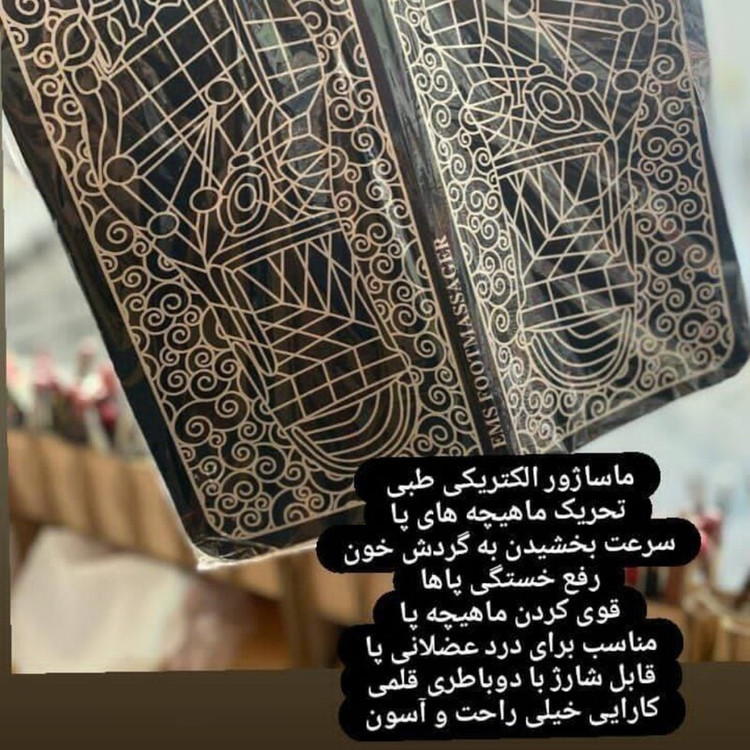 EMS FOOT MASSAGER
ماساژور الکتریکی طبی
تحریک ماهیچه های پا
سرعت بخشیدن به گردش خون
رفع خستگی پاها
قوی کردن ماهیچه پا
مناسب برای درد عضلانی پا
قابل شارژ با دوباطری قلمی
کارایی خیلی راحت و آسون